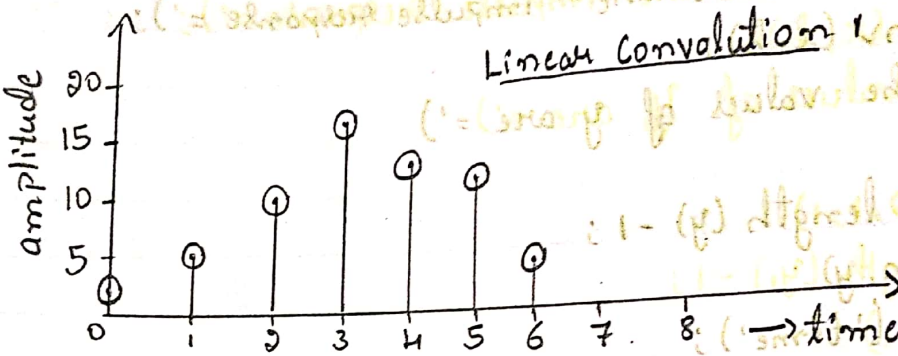 Linear Convolution 1
amplitude
20
15
10
5
0 1 2 3 4 5 6 7 8 → time